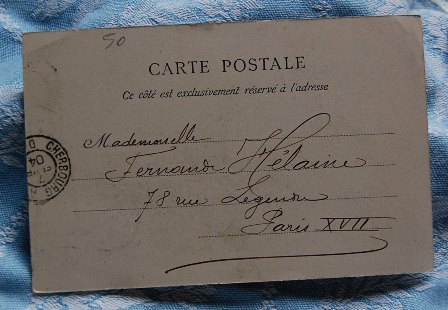 50
CARTE POSTALE
Ce côté est exclusivement réservé à l'adresse
Mademoiselle
Fernande Hélaine
78 rue Legendre
Paris XVII
CHERBOURG
04